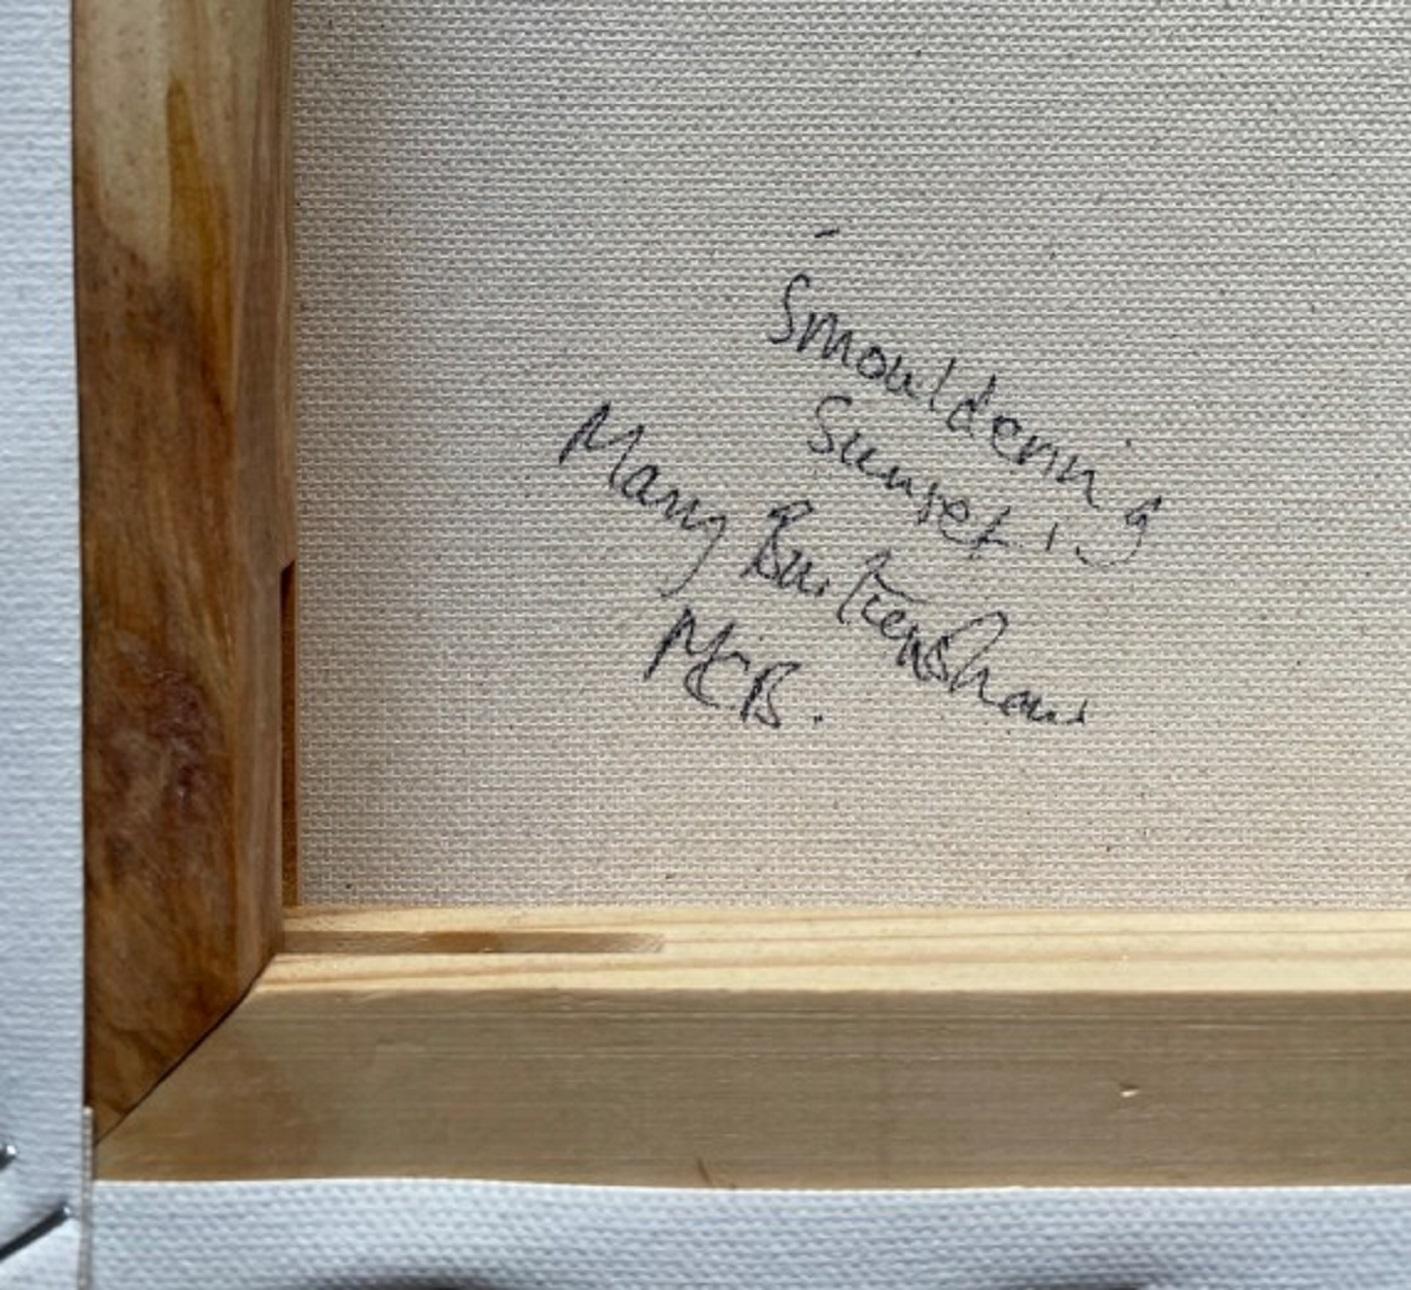 Smouldering
Sunset
Mary Burtenshaw
MCB.